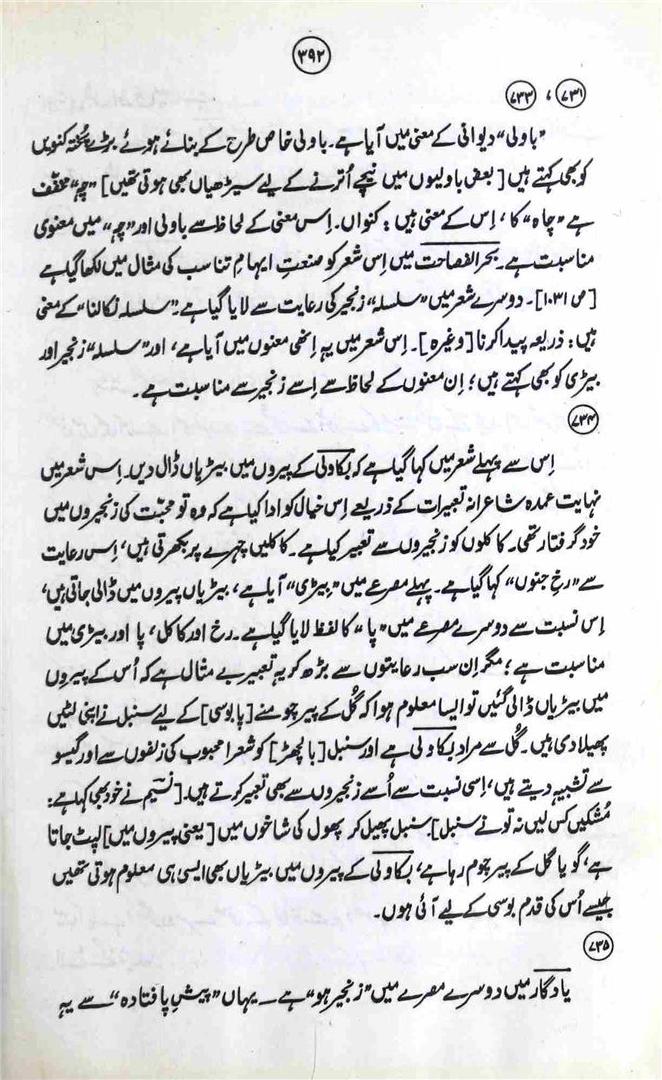 ۳۹۲
۷۳۱ ، ۷۳۳
"باولی" دیوانی کے معنی میں آیا ہے۔ باولی خاص طرح کے بنائے ہوئے بڑے پختہ کنویں
کو بھی کہتے ہیں [بعض باولیوں میں نیچے اُترنے کے لیے سیڑھیاں بھی ہوتی تھیں] "چہ" مخفف
ہے "چاہ" کا، اِس کے معنی ہیں: کنواں۔ اِس معنی کے لحاظ سے باولی اور "چہ" میں معنوی
مناسبت ہے۔ بحر الفصاحت میں اِس شعر کو صنعتِ ایہامِ تناسب کی مثال میں لکھا گیا ہے
[ص ۱۰۳۱]۔ دوسرے شعر میں "سلسلہ" زنجیر کی رعایت سے لایا گیا ہے۔ "سلسلہ نکالنا" کے معنی
ہیں: ذریعہ پیدا کرنا [وغیرہ]۔ اِس شعر میں یہ اِنھی معنوں میں آیا ہے، اور "سلسلہ" زنجیر اور
بیڑی کو بھی کہتے ہیں؛ اِن معنوں کے لحاظ سے اِسے زنجیر سے مناسبت ہے۔
۷۳۴
اِس سے پہلے شعر میں کہا گیا ہے کہ بکاولی کے پیروں میں بیڑیاں ڈال دیں۔ اِس شعر میں
نہایت عمدہ شاعرانہ تعبیرات کے ذریعے اِس خیال کو ادا کیا ہے کہ وہ تو محبّت کی زنجیروں میں
خود گرفتار تھی۔ کاکلوں کو زنجیروں سے تعبیر کیا ہے۔ کاکلیں چہرے پر بکھرتی ہیں، اِس رعایت
سے "رخِ جنوں" کہا گیا ہے۔ پہلے مصرعے میں "بیڑی" آیا ہے، بیڑیاں پیروں میں ڈالی جاتی ہیں،
اِس نسبت سے دوسرے مصرعے میں "پا" کا لفظ لایا گیا ہے۔ رخ اور کاکل، پا اور بیڑی میں
مناسبت ہے؛ مگر اِن سب رعایتوں سے بڑھ کر یہ تعبیر بے مثال ہے کہ اُس کے پیروں
میں بیڑیاں ڈالی گئیں تو ایسا معلوم ہوا کہ گُل کے پیر چومنے [پابوسی] کے لیے سنبل نے اپنی لٹیں
پھیلا دی ہیں۔ گُل سے مراد بکاولی ہے اور سنبل [بالچھڑ] کو شعرا محبوب کی زلفوں سے اور گیسو
سے تشبیہ دیتے ہیں، اِسی نسبت سے اُسے زنجیروں سے بھی تعبیر کرتے ہیں۔ [نسیم نے خود بھی کہا ہے:
مُشکیں کس لیں نہ تو نے سنبل]۔ سنبل پھیل کر پھول کی شاخوں میں [یعنی پیروں میں] لپٹ جاتا
ہے، گویا گل کے پیر چوم رہا ہے، بکاولی کے پیروں میں بیڑیاں بھی ایسی ہی معلوم ہوتی تھیں
جیسے اُس کی قدم بوسی کے لیے آئی ہوں۔
۷۳۵
یادگار میں دوسرے مصرعے میں "زنجیر ہو" ہے۔ یہاں "پیشِ پا افتادہ" سے یہ